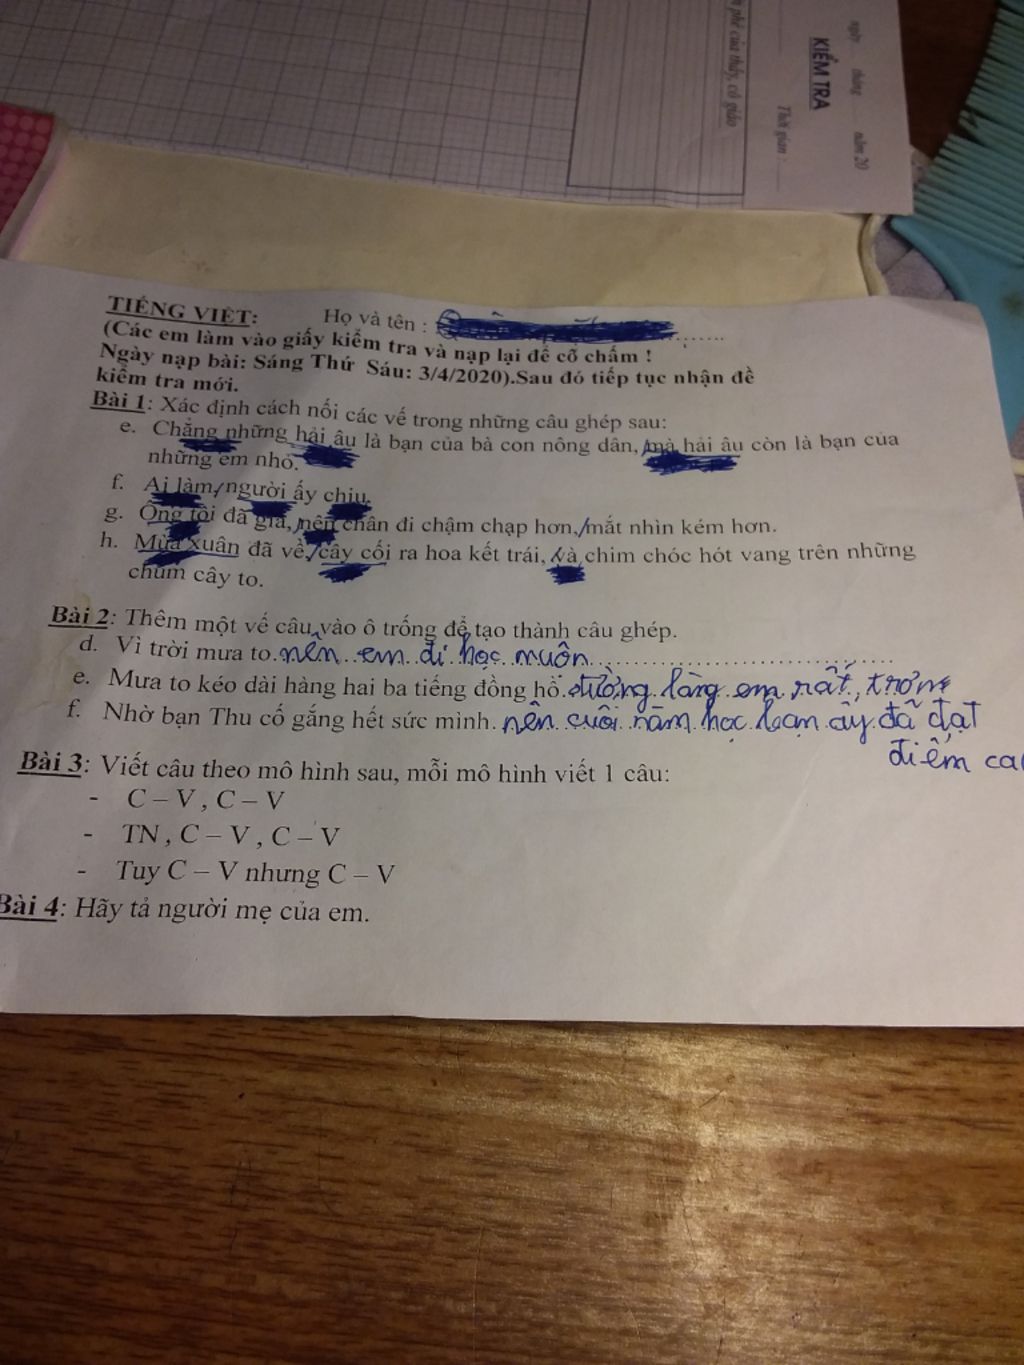 ngày tháng năm 20
KIỂM TRA
Thời gian :
phê của thầy, cô giáo
TIẾNG VIỆT: Họ và tên :
(Các em làm vào giấy kiểm tra và nạp lại để cô chấm !
Ngày nạp bài: Sáng Thứ Sáu: 3/4/2020).Sau đó tiếp tục nhận đề
kiểm tra mới.
Bài 1: Xác định cách nối các vế trong những câu ghép sau:
e. Chẳng những hải âu là bạn của bà con nông dân, mà hải âu còn là bạn của
những em nhỏ.
f. Ai làm, người ấy chịu.
g. Ông tôi đã già, nên chân đi chậm chạp hơn, mắt nhìn kém hơn.
h. Mùa xuân đã về, cây cối ra hoa kết trái, và chim chóc hót vang trên những
chùm cây to.
Bài 2: Thêm một vế câu vào ô trống để tạo thành câu ghép.
d. Vì trời mưa to nên em đi học muộn
e. Mưa to kéo dài hàng hai ba tiếng đồng hồ. đường làng em rất trơn
f. Nhờ bạn Thu cố gắng hết sức mình. nên cuối năm học bạn ấy đã đạt
điểm cao
Bài 3: Viết câu theo mô hình sau, mỗi mô hình viết 1 câu:
- C – V , C – V
- TN , C – V , C – V
- Tuy C – V nhưng C – V
Bài 4: Hãy tả người mẹ của em.